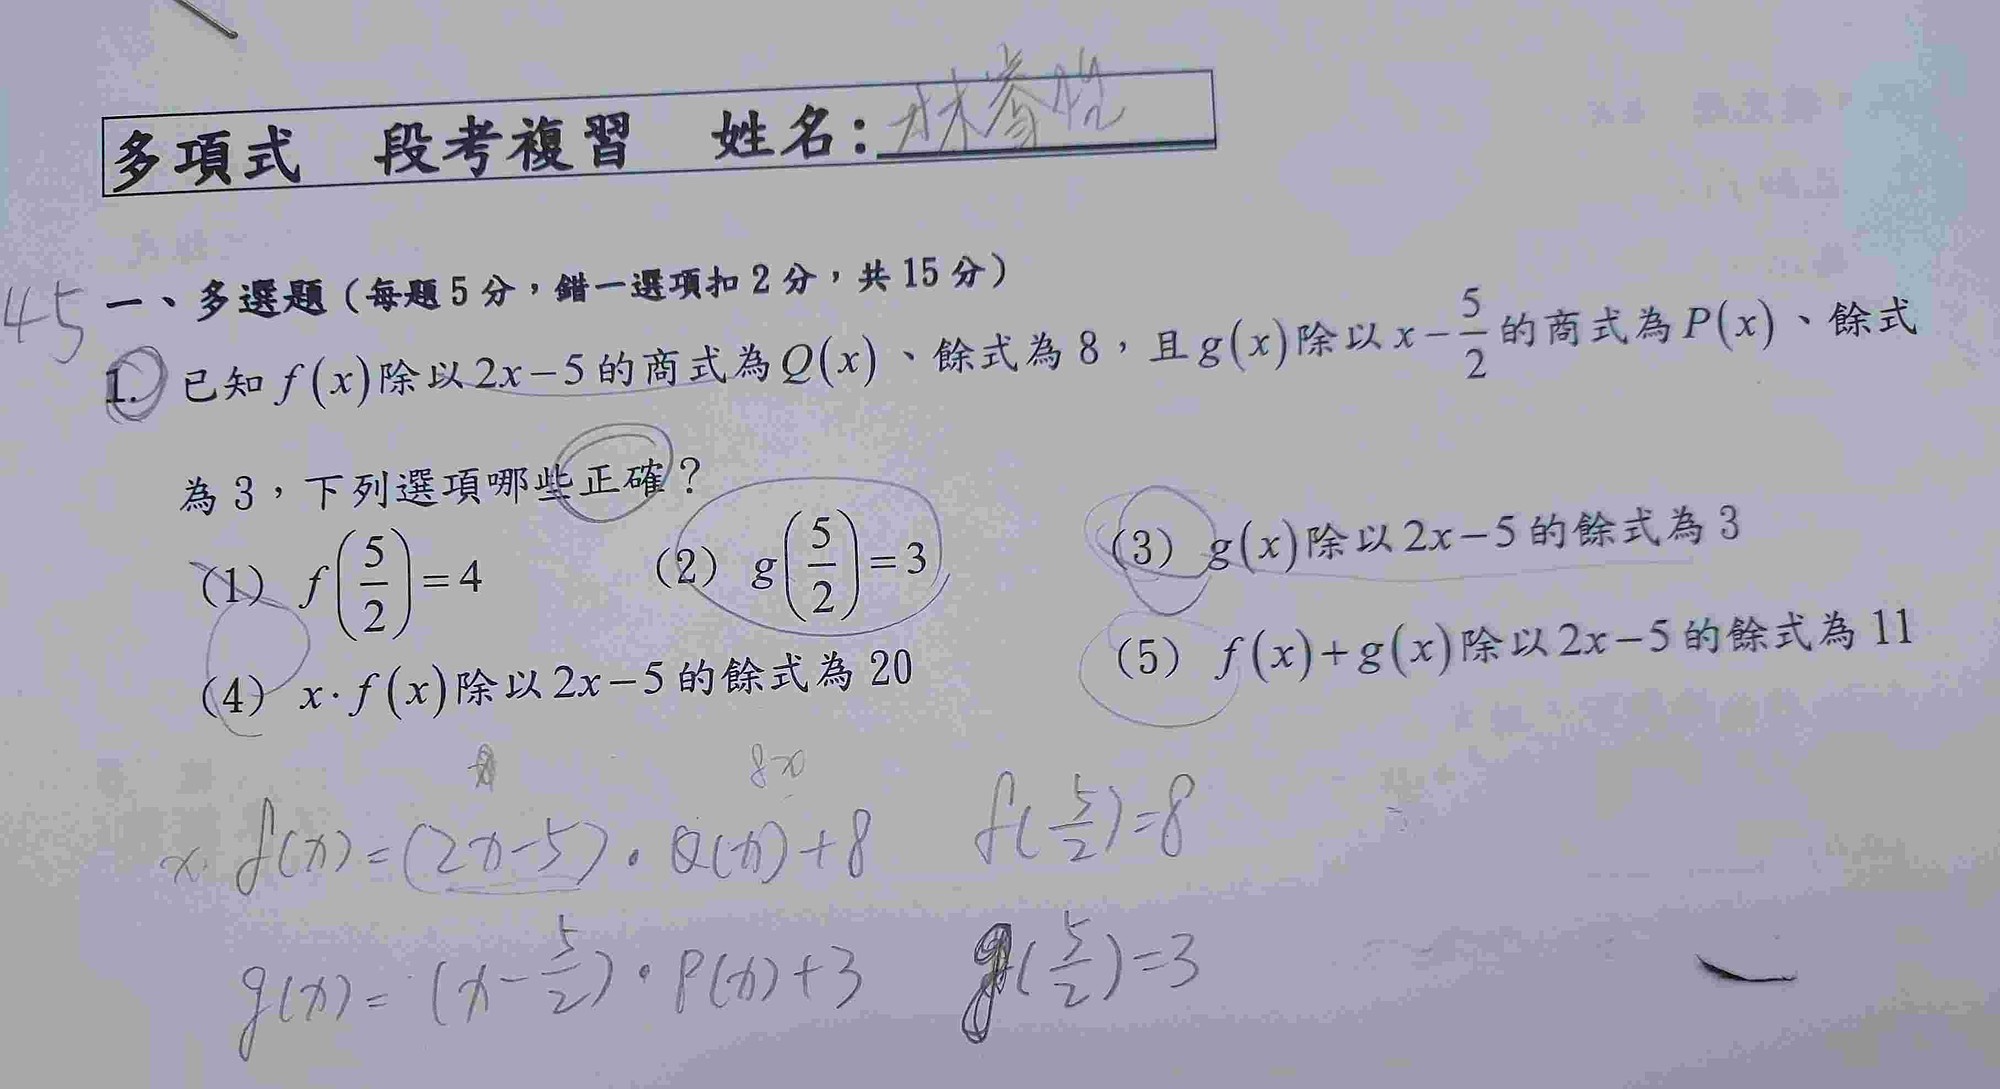 多項式 段考複習 姓名：林
45
一、多選題（每題5分，錯一選項扣2分，共15分）
1. 已知 f(x) 除以 2x－5 的商式為 Q(x)、餘式為 8，且 g(x) 除以 x－5/2 的商式為 P(x)、餘式
為 3，下列選項哪些正確？
(1) f(5/2)＝4 (2) g(5/2)＝3 (3) g(x) 除以 2x－5 的餘式為 3
(4) x·f(x) 除以 2x－5 的餘式為 20 (5) f(x)＋g(x) 除以 2x－5 的餘式為 11
8x
x· f(x)=(2x-5)·Q(x)+8 f(5/2)=8
g(x)=(x-5/2)·P(x)+3 g(5/2)=3